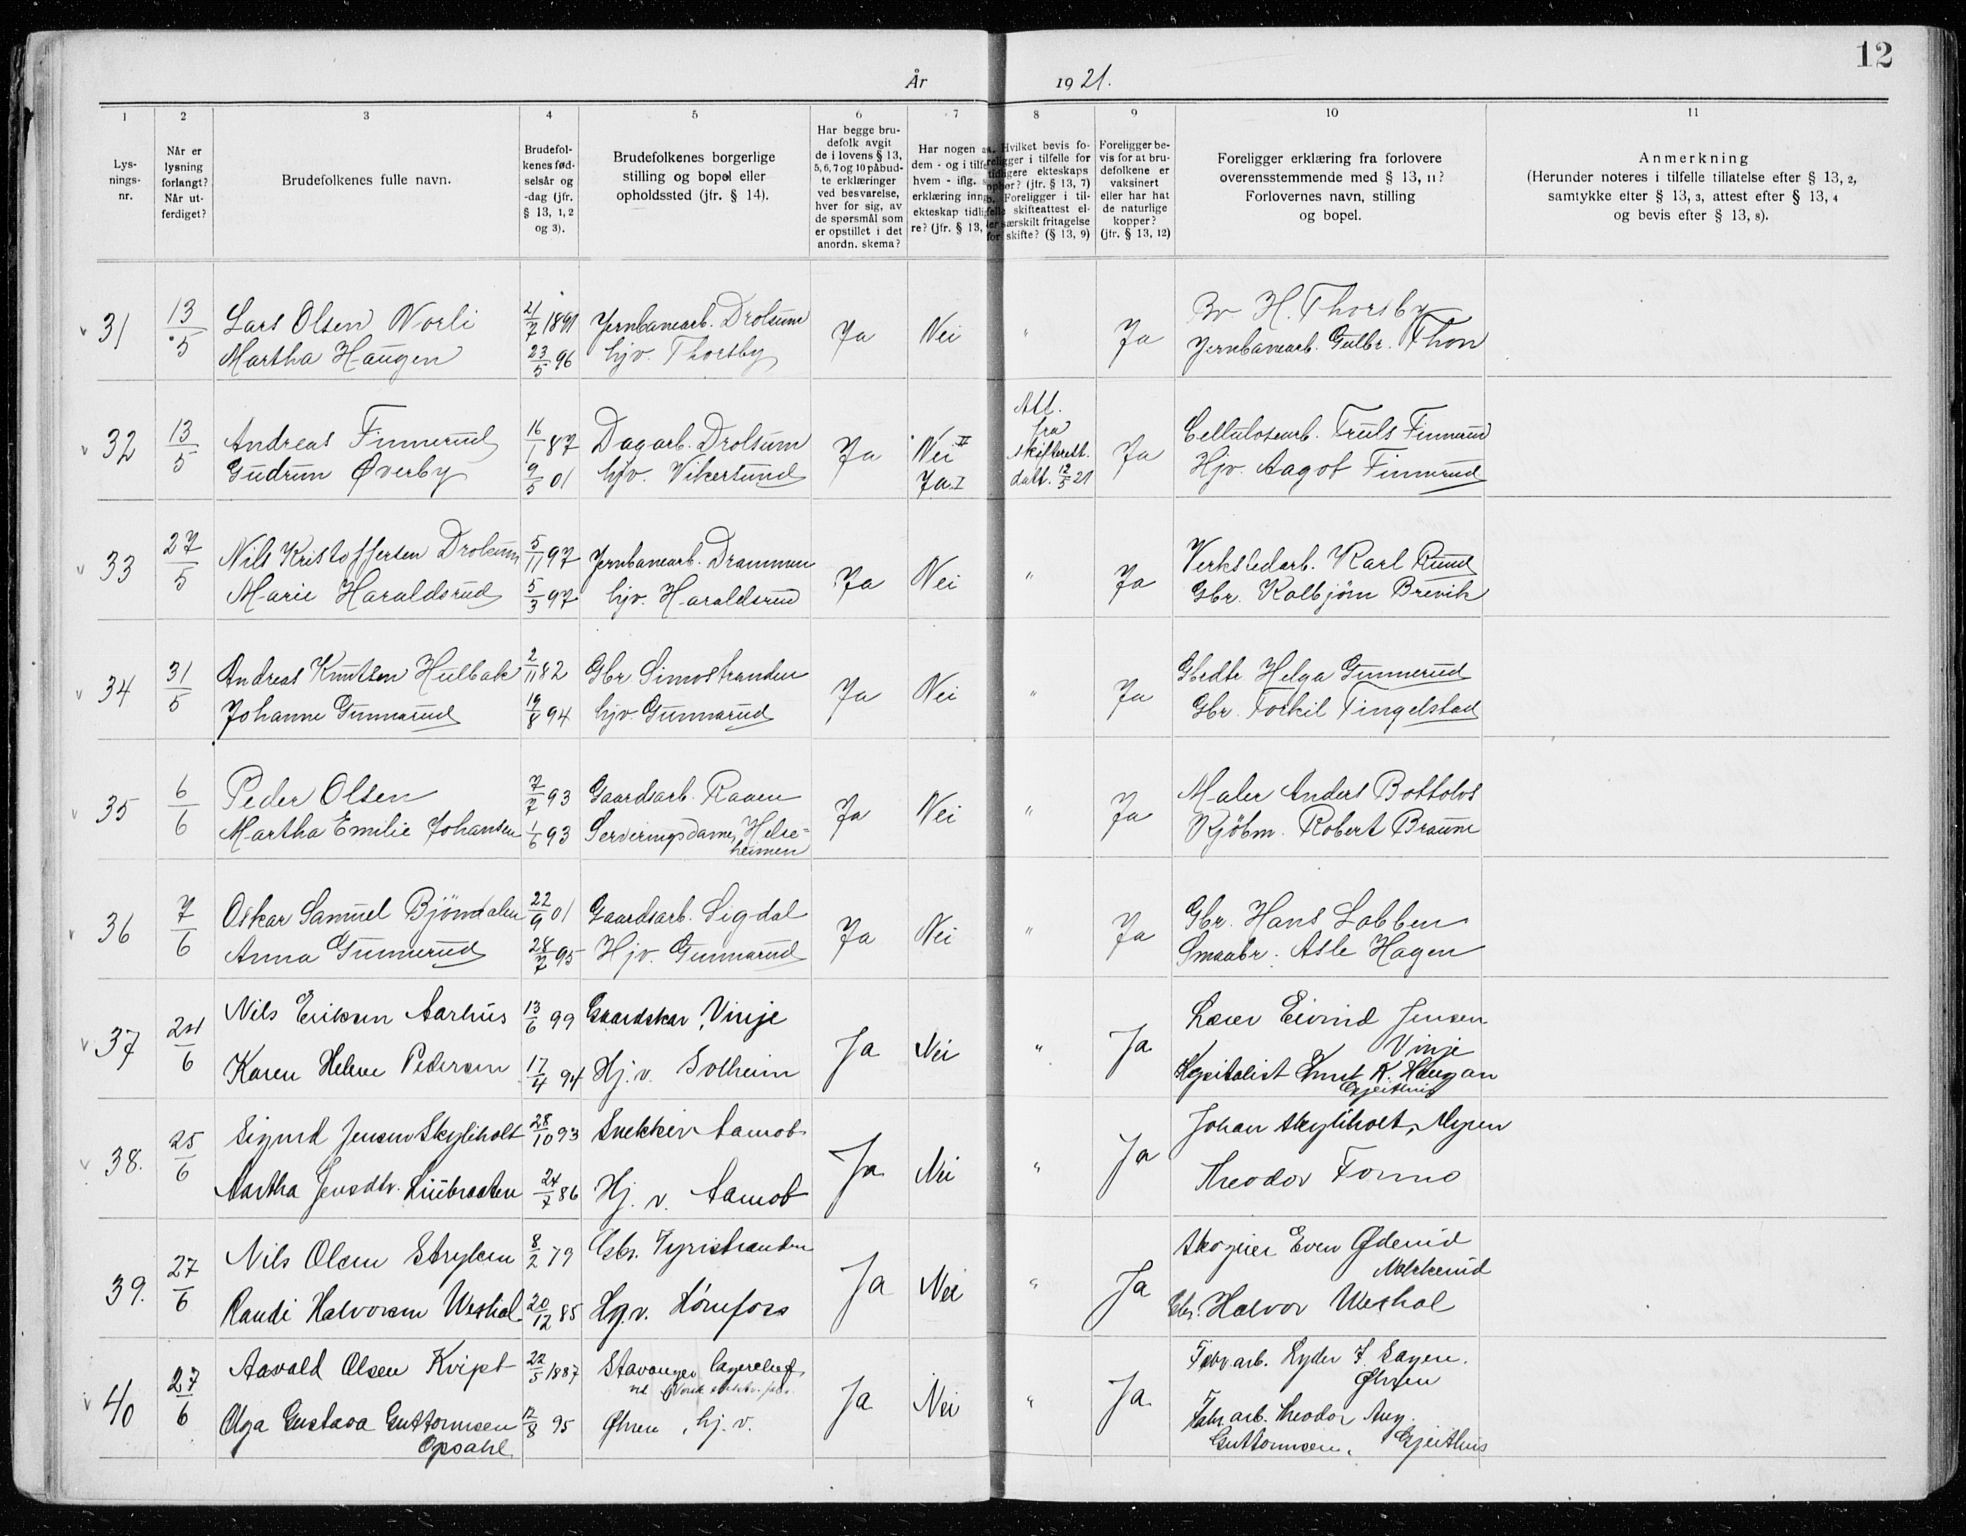 12
År 1921.
1 2 3 4 5 6 7 8 9 10 11
Lys-
nings-
nr.
Når er
lysning
forlangt?
Når ut-
ferdiget?
Brudefolkenes fulle navn.
Brudefol-
kenes fød-
selsår og
-dag (jfr.
§ 13, 1, 2
og 3).
Brudefolkenes borgerlige
stilling og bopel eller
opholdssted (jfr. § 14).
Har begge bru-
defolk avgit
de i lovens § 13,
5, 6, 7 og 10 påbud-
te erklæringer
ved besvarelse,
hver for sig, av
de spørsmål som
er opstillet i det
anordn. skema?
Har nogen av
dem - og i tilfe
hvem - iflg.
erklæring inng
ekteskap tidli
re? (jfr. § 13,
Hvilket bevis fo-
religger i tilfelle for
tidligere ekteskaps
ophør? (jfr. § 13, 7)
Foreligger i til-
felle skifteattest el-
ler særskilt fritagelse
for skifte? (§ 13, 9)
Foreligger be-
vis for at bru-
defolkene er
vaksinert
eller har hat
de naturlige
kopper?
(jfr. § 13, 12)
Foreligger erklæring fra forlovere
overensstemmende med § 13, 11?
Forlovernes navn, stilling
og bopel.
Anmerkning
(Herunder noteres i tilfelle tillatelse efter § 13, 2,
samtykke efter § 13, 3, attest efter § 13, 4
og bevis efter § 13, 8).
31 13/5 Lars Olsen Norli 21/7 1891 Jernbanearb. Drolsum Ja Nei " Ja H. Thorsby
Martha Haugen 23/5 96 hjv. Thorsby Jernbanearb. Gulbr. Thon
32 13/5 Andreas Finnerud 16/1 87 Dagarb. Drolsum Ja Nei II Att. fra Ja Cellulosearb. Truls Finnerud
Gudrun Øverby 9/5 01 hjv. Vikersund Ja I skifterett. datt. 12/5 21 Hjv. Aagot Finnerud
33 27/5 Nils Kristoffersen Drolsum 5/11 97 Jernbanearb. Drammen Ja Nei " Ja Verkstedarb. Karl Ruud
Marie Haraldsrud 5/3 97 hjv. Haraldsrud Gbr. Kolbjörn Brevik
34 31/5 Andreas Knutsen Hulbak 2/11 82 Gbr Simostranden Ja Nei " Ja Gbedte Helga Gunnerud
Johanne Gunnarud 19/8 94 hjv. Gunnarud Gbr. Torkil Tingelstad
35 6/6 Peder Olsen 7/7 93 Gaardsarb. Raaen Ja Nei " Ja Maler Anders Bottolvs
Martha Emilie Johansen 1/6 93 Serveringsdame, Helse-
heimen Kjöbm. Robert Braune
36 7/6 Oskar Samuel Bjöndalen 22/9 01 Gaardsarb. Sigdal Ja Nei " Ja Gbr. Hans Lobben
Anna Gunnerud 28/7 95 Hjv. Gunnarud Smaabr. Asle Hagen
37 24/6 Nils Eriksen Aarhus 13/6 99 Gaardskar, Vinje Ja Nei " Ja Lærer Eivind Jensen
Vinje
Karen Helene Pedersen 17/4 94 Hj. v. Solheim Kapitalist Knut K. Haugan
Gjeithus
38. 25/6 Sigurd Jensen Skyliholt 28/10 93 Snekker Aamot Ja Nei " Ja Johan Skyliholt, Mysen
Aartha Jensdtr. Liubraaten 24/7 86 Hj. v. Aamot Theodor Formo
39. 27/6 Nils Olsen Stryken 8/2 79 Gbr. Tyristranden Ja Nei " Ja Skogeier Even Øderud
Nakkerud
Randi Halvorsen Weshal 20/12 85 Hj. v. Hønefoss Gbr. Halvor Weshal
40 27/6 Aavald Olsen Kvipt 22/5 1887 Stavanger lagerchef Ja Nei " Ja Fabr.arb. Lyder F. Sagen.
ved Norsk Øhren
Olga Gustava Guttormsen 12/8 95 Øhren, hj. v. Fabr.arb. Theodor Aug.
Opsahl Guttormsen, Gjeithus